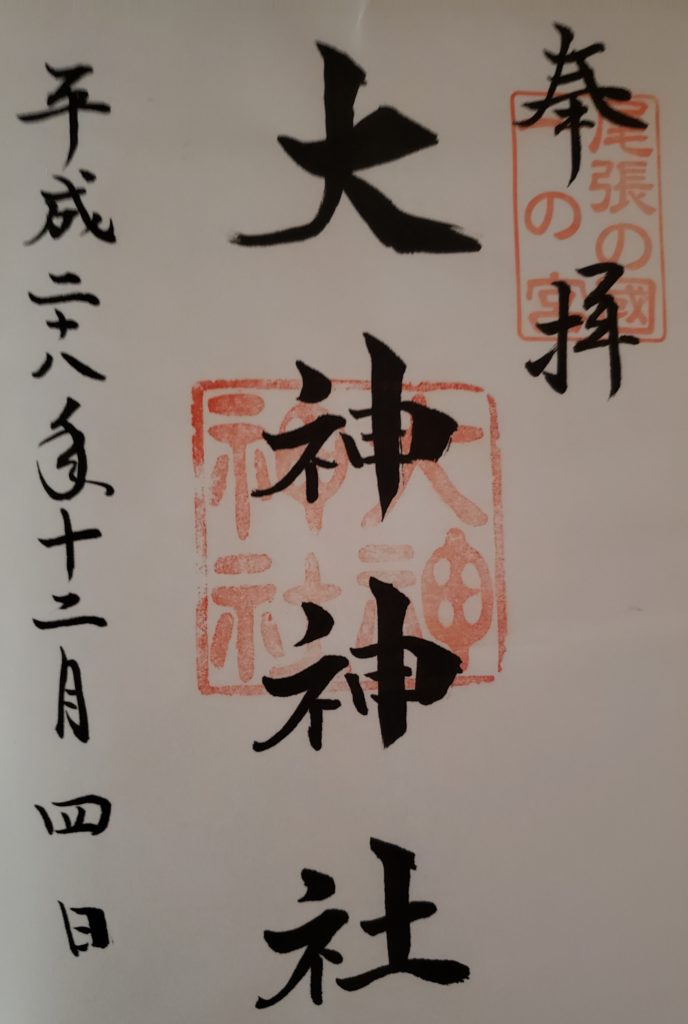 奉拝
尾張の國
一の宮
大神神社
大神
神社
平成二十八年十二月四日